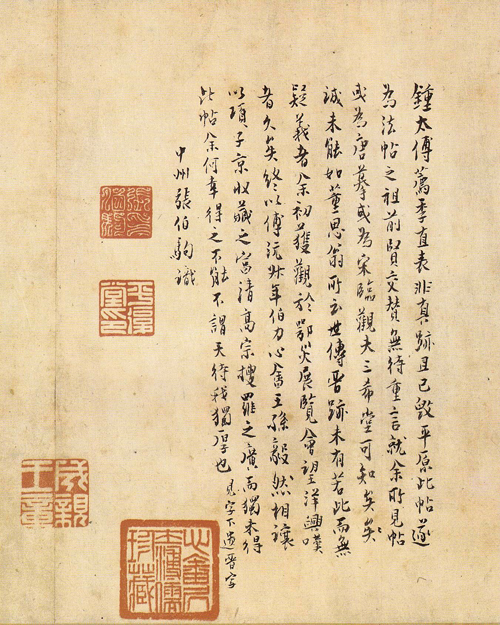 鍾太傅薦季直表非真跡且已毀平原此帖遂
為法帖之祖前賢交贊無待重言就余所見帖
或為唐摹或為宋臨觀夫三希堂可知矣矣
誠未能如董思翁所云世傳晉跡未有若此而無
疑義者余初獲觀於鄂災展覽會望洋興嘆
者久矣終以傅沅叔年伯力心畬王孫毅然相讓
以項子京收藏之富清高宗搜羅之廣而獨未得
此帖余何幸得之不能不謂天待我獨厚也 見字下遺晉字
中州張伯駒識
平復堂印